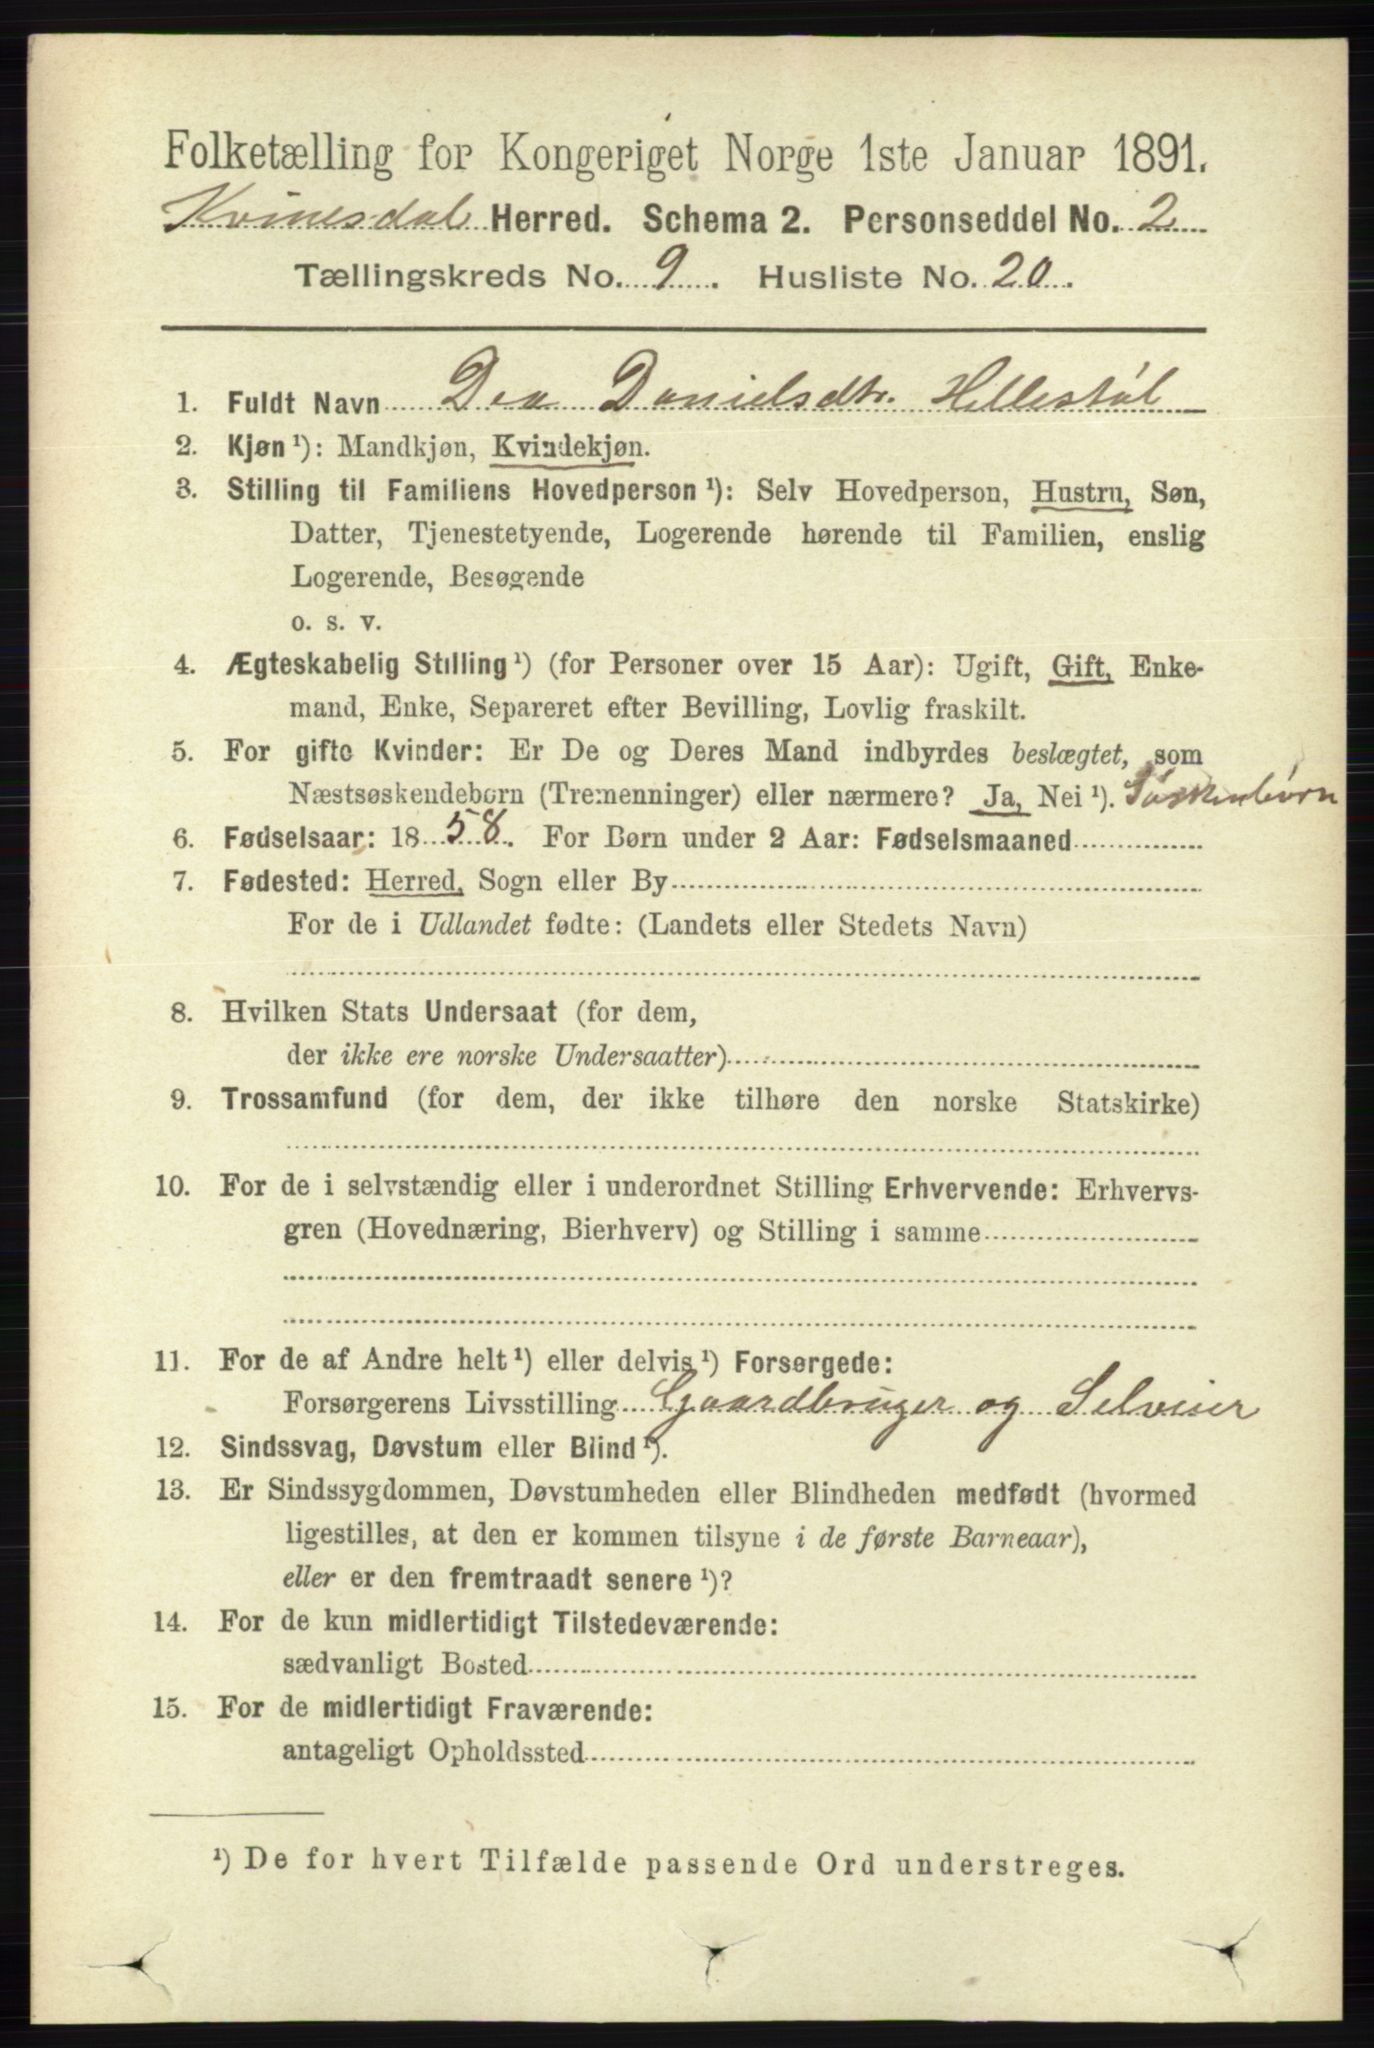 Folketælling for Kongeriget Norge 1ste Januar 1891.
Kvinesdal Herred. Schema 2. Personseddel No. 2
Tællingskreds No. 9. Husliste No. 20.
1. Fuldt Navn Dea Danielsdtr. Hellestøl
2. Kjøn ¹): Mandkjøn, Kvindekjøn.
3. Stilling til Familiens Hovedperson ¹): Selv Hovedperson, Hustru, Søn,
Datter, Tjenestetyende, Logerende hørende til Familien, enslig
Logerende, Besøgende
o. s. v.
4. Ægteskabelig Stilling ¹) (for Personer over 15 Aar): Ugift, Gift, Enke-
mand, Enke, Separeret efter Bevilling, Lovlig fraskilt.
5. For gifte Kvinder: Er De og Deres Mand indbyrdes beslægtet, som
Næstsøskendebørn (Tremenninger) eller nærmere? Ja, Nei ¹). Søskenbörn
6. Fødselsaar: 1858. For Børn under 2 Aar: Fødselsmaaned
7. Fødested: Herred, Sogn eller By
For de i Udlandet fødte: (Landets eller Stedets Navn)
8. Hvilken Stats Undersaat (for dem,
der ikke ere norske Undersaatter)
9. Trossamfund (for dem, der ikke tilhøre den norske Statskirke)
10. For de i selvstændig eller i underordnet Stilling Erhvervende: Erhvervs-
gren (Hovednæring, Bierhverv) og Stilling i samme
11. For de af Andre helt ¹) eller delvis ¹) Forsørgede:
Forsørgerens Livsstilling Gaardbruger og Selveier
12. Sindssvag, Døvstum eller Blind ¹).
13. Er Sindssygdommen, Døvstumheden eller Blindheden medfødt (hvormed
ligestilles, at den er kommen tilsyne i de første Barneaar),
eller er den fremtraadt senere ¹)?
14. For de kun midlertidigt Tilstedeværende:
sædvanligt Bosted
15. For de midlertidigt Fraværende:
antageligt Opholdssted
¹) De for hvert Tilfælde passende Ord understreges.